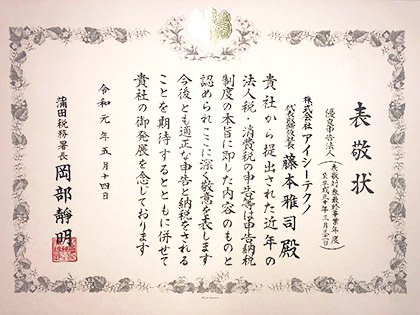 表敬状
優良申告法人
株式会社 アイシーテクノ
代表取締役社長 藤本雅司 殿
貴社から提出された近年の
法人税・消費税の申告書は申告納税
制度の本旨に即した内容のものと
認められここに深く敬意を表します
今後とも適正な申告と納税をされる
ことを期待するとともに併せて
貴社の御発展を念じております
令和元年五月十四日
蒲田税務署長 岡部靜明